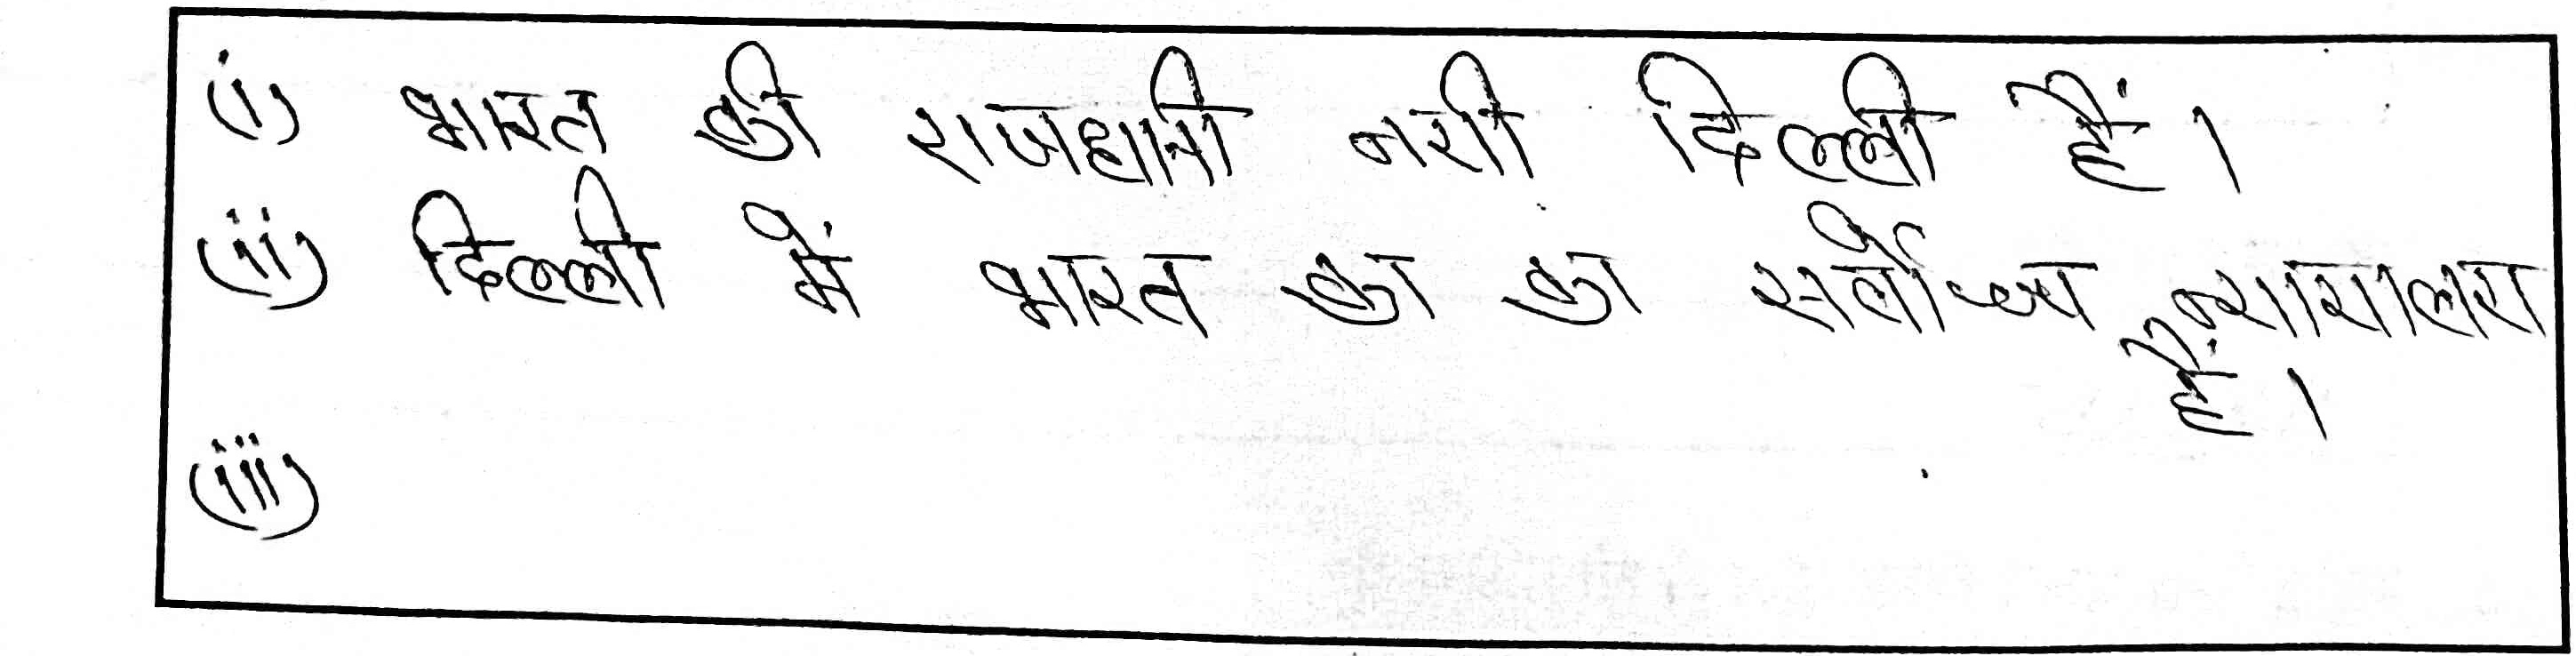 (i) भारत की राजधानी नयी दिल्ली हैं।
(ii) दिल्ली में भारत का का सर्वोच्च न्यायालय
हैं।
(iii)